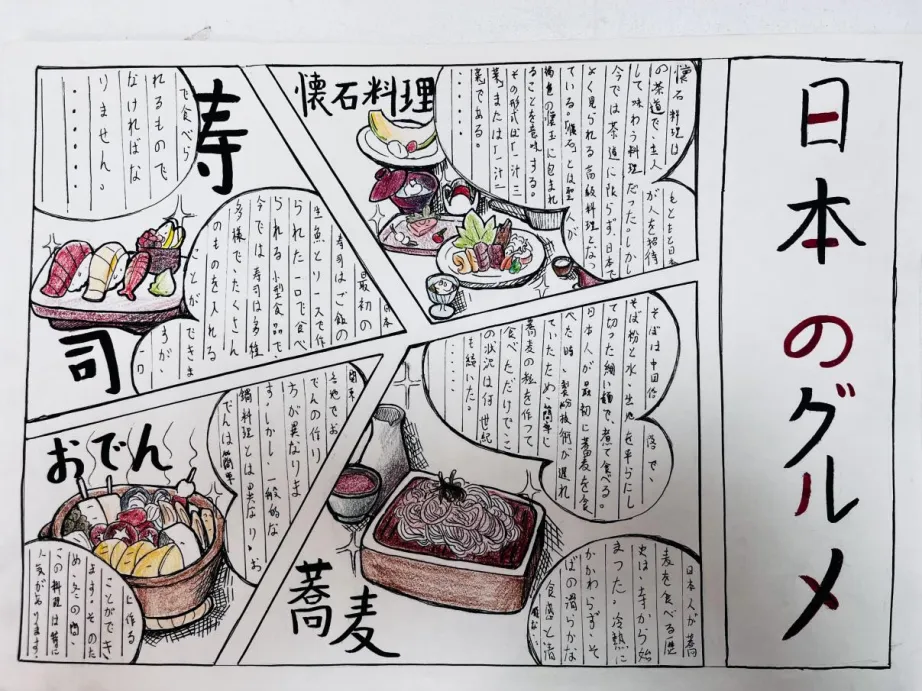 日本のグルメ
懐石料理
懐石料理は
もともと日本
の茶道で、主人
が人を招待
して味わう料理だった。しかし
今では茶道に限らず、日本で
よく見られる高級料理となっ
ている。「懐石」とは
懐に包まれ
ることを意味する。
その形式は「一汁三
菜」または「一汁二
菜」である。
寿司
寿司はご飯の
最初の
日本
生魚とソースで作
られた一口で食べ
られる小型食品で、
今では寿司は多種
多様で、たくさん
のものを入れる
ことができま
すが、
で食べら
れるもので
なければな
りません。
蕎麦
そばは中国倍
で、
そば粉と水
生地を平らにし
て切った細い麺で、煮て食べる。
日本人が最初に蕎麦を食
べた時、製粉技術が遅れ
ていたため、簡単に
蕎麦の粒を作って
食べただけで、こ
の状況は何世紀
も続いた。
日本人が蕎
麦を食べる歴
史は、寺から始
まった。冷熱に
かかわらず、そ
ばの滑らかな
食感と清
おでん
関東
各地で、お
でんの作り
方が異なりま
す。しかし、一般的な
鍋料理とは異なり、お
でんは簡単
に作る
ことができ
ます。そのた
め、冬の間、
この料理は常に
人気があります。